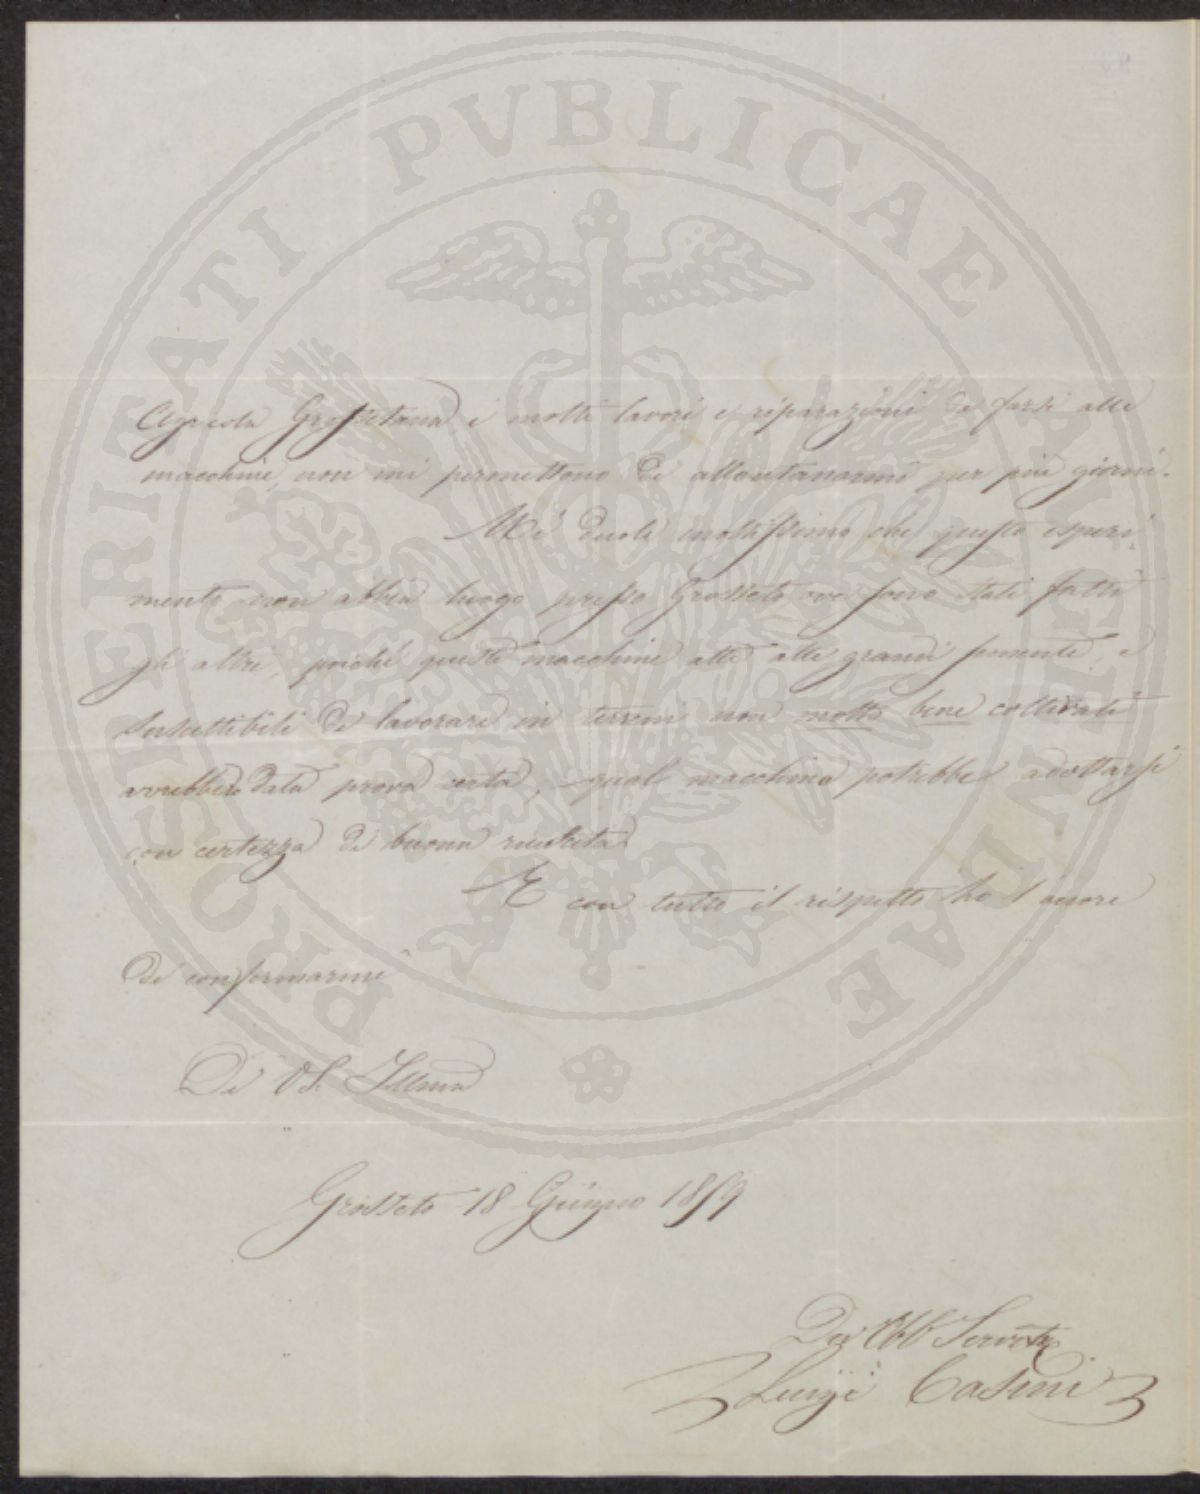 PROSPERITATI PVBLICAE AVGENDAE
Agricola Grossetana, i molti lavori e riparazioni da farsi alle
macchine, non mi permettono di allontanarmi per più giorni.
Mi duole moltissimo che questo esperi
mento non abbia luogo presso Grosseto ove sono stati fatti
gli altri, poiché queste macchine atte alle grandi semente, e
suscettibili di lavorare in terreni non molto bene coltivati
avrebbero data prova certa, qual macchina potrebbe adottarsi
con certezza di buona riuscita.
E con tutto il rispetto ho l'onore
di confermarmi
Di VS. Illma
Grosseto 18 Giugno 1859
Luigi Casini